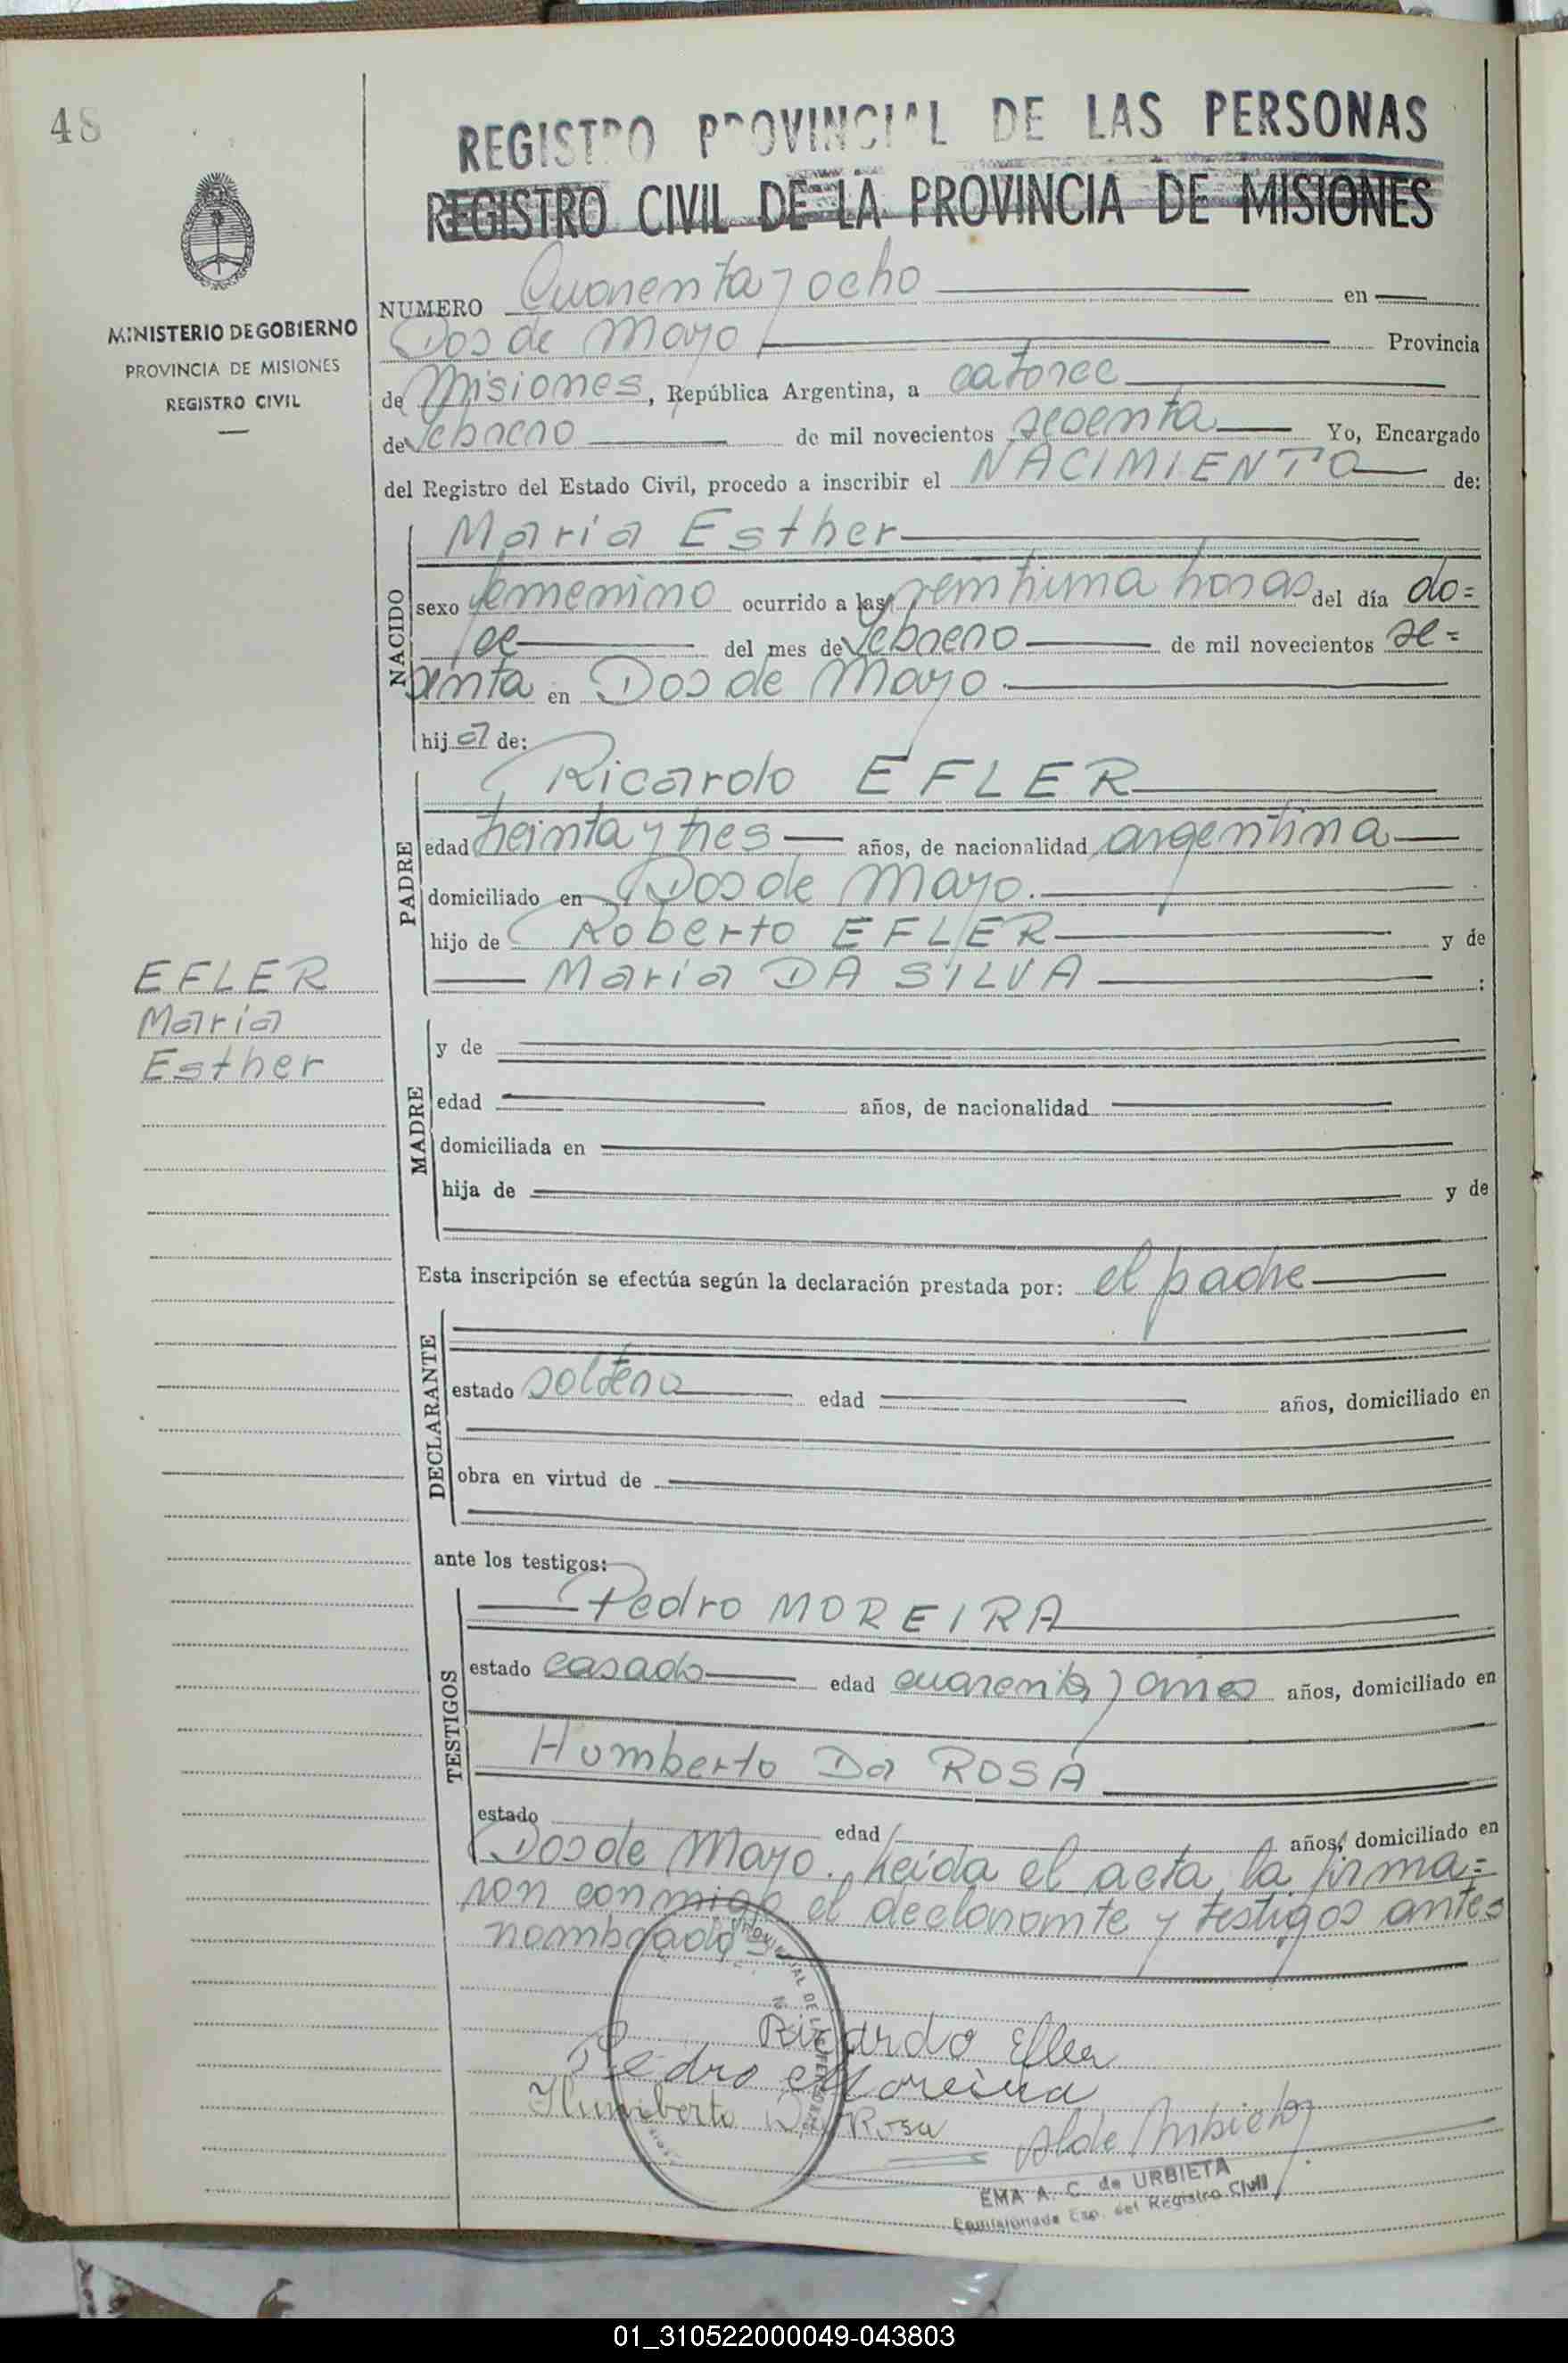 48
REGISTRO PROVINCIAL DE LAS PERSONAS
REGISTRO CIVIL DE LA PROVINCIA DE MISIONES
MINISTERIO DE GOBIERNO
PROVINCIA DE MISIONES
REGISTRO CIVIL
NUMERO Cuarenta y ocho en
Dos de Mayo Provincia
de Misiones, República Argentina, a catorce
de febrero de mil novecientos sesenta Yo, Encargado
del Registro del Estado Civil, procedo a inscribir el NACIMIENTO de:
NACIDO
María Esther
sexo femenino ocurrido a las veintiuna horas del día do=
ce del mes de febrero de mil novecientos se=
senta en Dos de Mayo
hija de:
PADRE
Ricardo EFLER
edad treinta y tres años, de nacionalidad argentina
domiciliado en Dos de Mayo.
hijo de Roberto EFLER y de
María DA SILVA :
EFLER
María
Esther
MADRE
y de
edad años, de nacionalidad
domiciliada en
hija de y de
Esta inscripción se efectúa según la declaración prestada por: el padre
DECLARANTE
estado soltero edad años, domiciliado en
obra en virtud de
ante los testigos:
TESTIGOS
Pedro MOREIRA
estado casado edad cuarenta y años, domiciliado en
Humberto Da ROSA
estado edad años, domiciliado en
Dos de Mayo. Leida el acta, la firma=
ron conmigo el declarante y testigos antes
nombrados
Ricardo Efler
Pedro Moreira
Humberto Da Rosa
EMA A. C. de URBIETA
Comisionada Esp. del Registro Civil
01_310522000049-043803